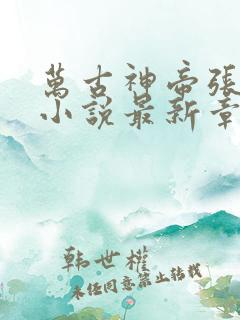 萬古神帝張
小說最新章
韩世權
未经同意禁止转载